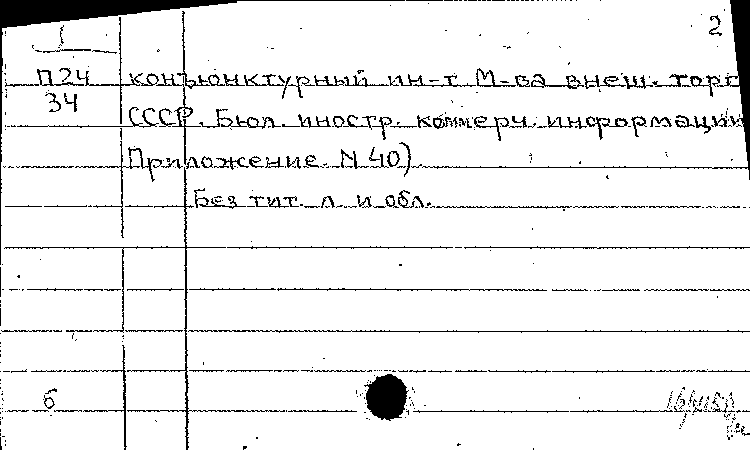 2
П24 конъюнктурный ин-т М-ва внеш. торг
34
СССР. Бюл. иностр. коммерч. информации
Приложение. N 40)
Без тит. л. и обл.
б